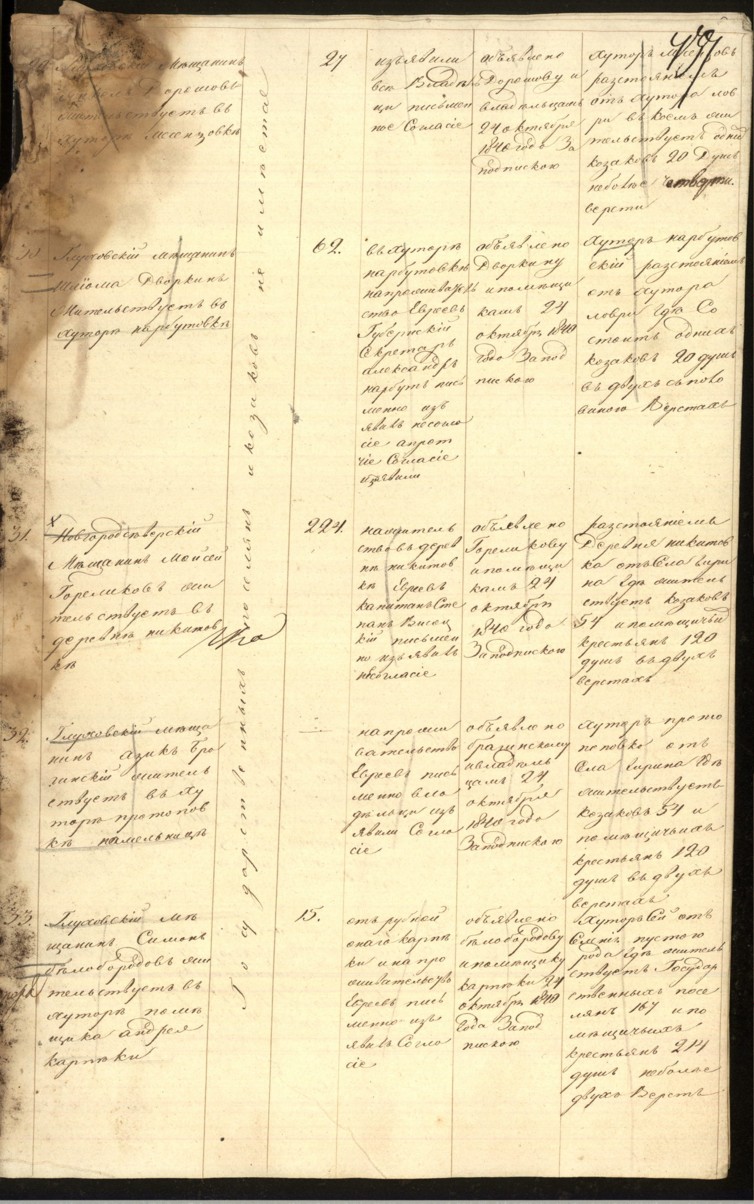 471
Мѣщанинъ
Дорошовъ
жительствуетъ въ
хуторѣ
27
изъявили
всѣ Владѣль
цы письмен
ное Согласіе
объявлено
Дорошову и
владѣльцамъ
24 октября
1840 года За
подпискою
Хуторъ
разстояніемъ
отъ хутора лов
ри въ коемъ жи
тельствуетъ одних
козаковъ 20 Душъ
неболѣе четверти
версты
Глуховскій мѣщанинъ
Дворкинъ
Жительствуетъ въ
хуторѣ нарбутовкѣ
62.
въ хуторѣ
нарбутовкѣ
на проживатель
ство Евреевъ
Губернскій
Секретарь
александръ
нарбутъ пись
менно изъ
явилъ несогла
сіе а проч
чіе Согласіе
изъявили
объявлено
Дворкину
и помѣщи
камъ 24
октября 1840
года За под
пискою
Хуторъ нарбутов
скій разстояніемъ
отъ хутора
ловри гдѣ Со
стоитъ однихъ
козаковъ 20 душъ
въ двухъ съ поло
виною Верстахъ
31.
Новгородсѣверскій
Мѣщанинъ Мойсей
Гореликовъ жи
тельствуетъ въ
деревнѣ никитов
кѣ
224.
на жител
ство въ дерев
нѣ никитов
кѣ Евреевъ
капитанъ Сте
панъ
кій письмен
но изъявилъ
несогласіе
объявлено
Гореликову
и помѣщи
камъ 24
октября
1840 года
За подпискою
разстояніемъ
Деревня никитов
ка отъ Села
на гдѣ житель
ствуетъ козаковъ
54 и помѣщичьихъ
крестьянъ 120
душъ въ двухъ
верстахъ
32.
Глуховскій мѣща
нинъ
жител
ствуетъ въ ху
торѣ протопов
кѣ на мельницѣ
на прожи
вательство
Евреевъ пись
менно вла
дѣльцы изъ
явили Согла
сіе
объявлено
и владѣль
цамъ 24
октября
1840 года
За подпискою
Хуторъ прото
поповка отъ
Села гдѣ
жительствуетъ
козаковъ 54 и
помѣщичьихъ
крестьянъ 120
душъ въ двухъ
верстахъ
33.
Глуховскій мѣ
щанинъ Симонъ
бѣлобородовъ жи
тельствуетъ въ
хуторѣ помѣ
щика андрея
карпѣки
15.
онаго карпѣ
ки и на про
живательство
Евреевъ пись
менно изъ
явилъ Согла
сіе
объявлено
бѣлобородову
и помѣщику
карпѣки 24
октября 1840
года За под
пискою
Хуторъ Сей отъ
пустого
рода гдѣ житель
ствуетъ Государ
ственныхъ посе
лянъ 167 и по
мѣщичьихъ
крестьянъ 214
душъ неболѣе
двухъ Верстъ
Государственныхъ поселянъ и козаковъ не имѣется